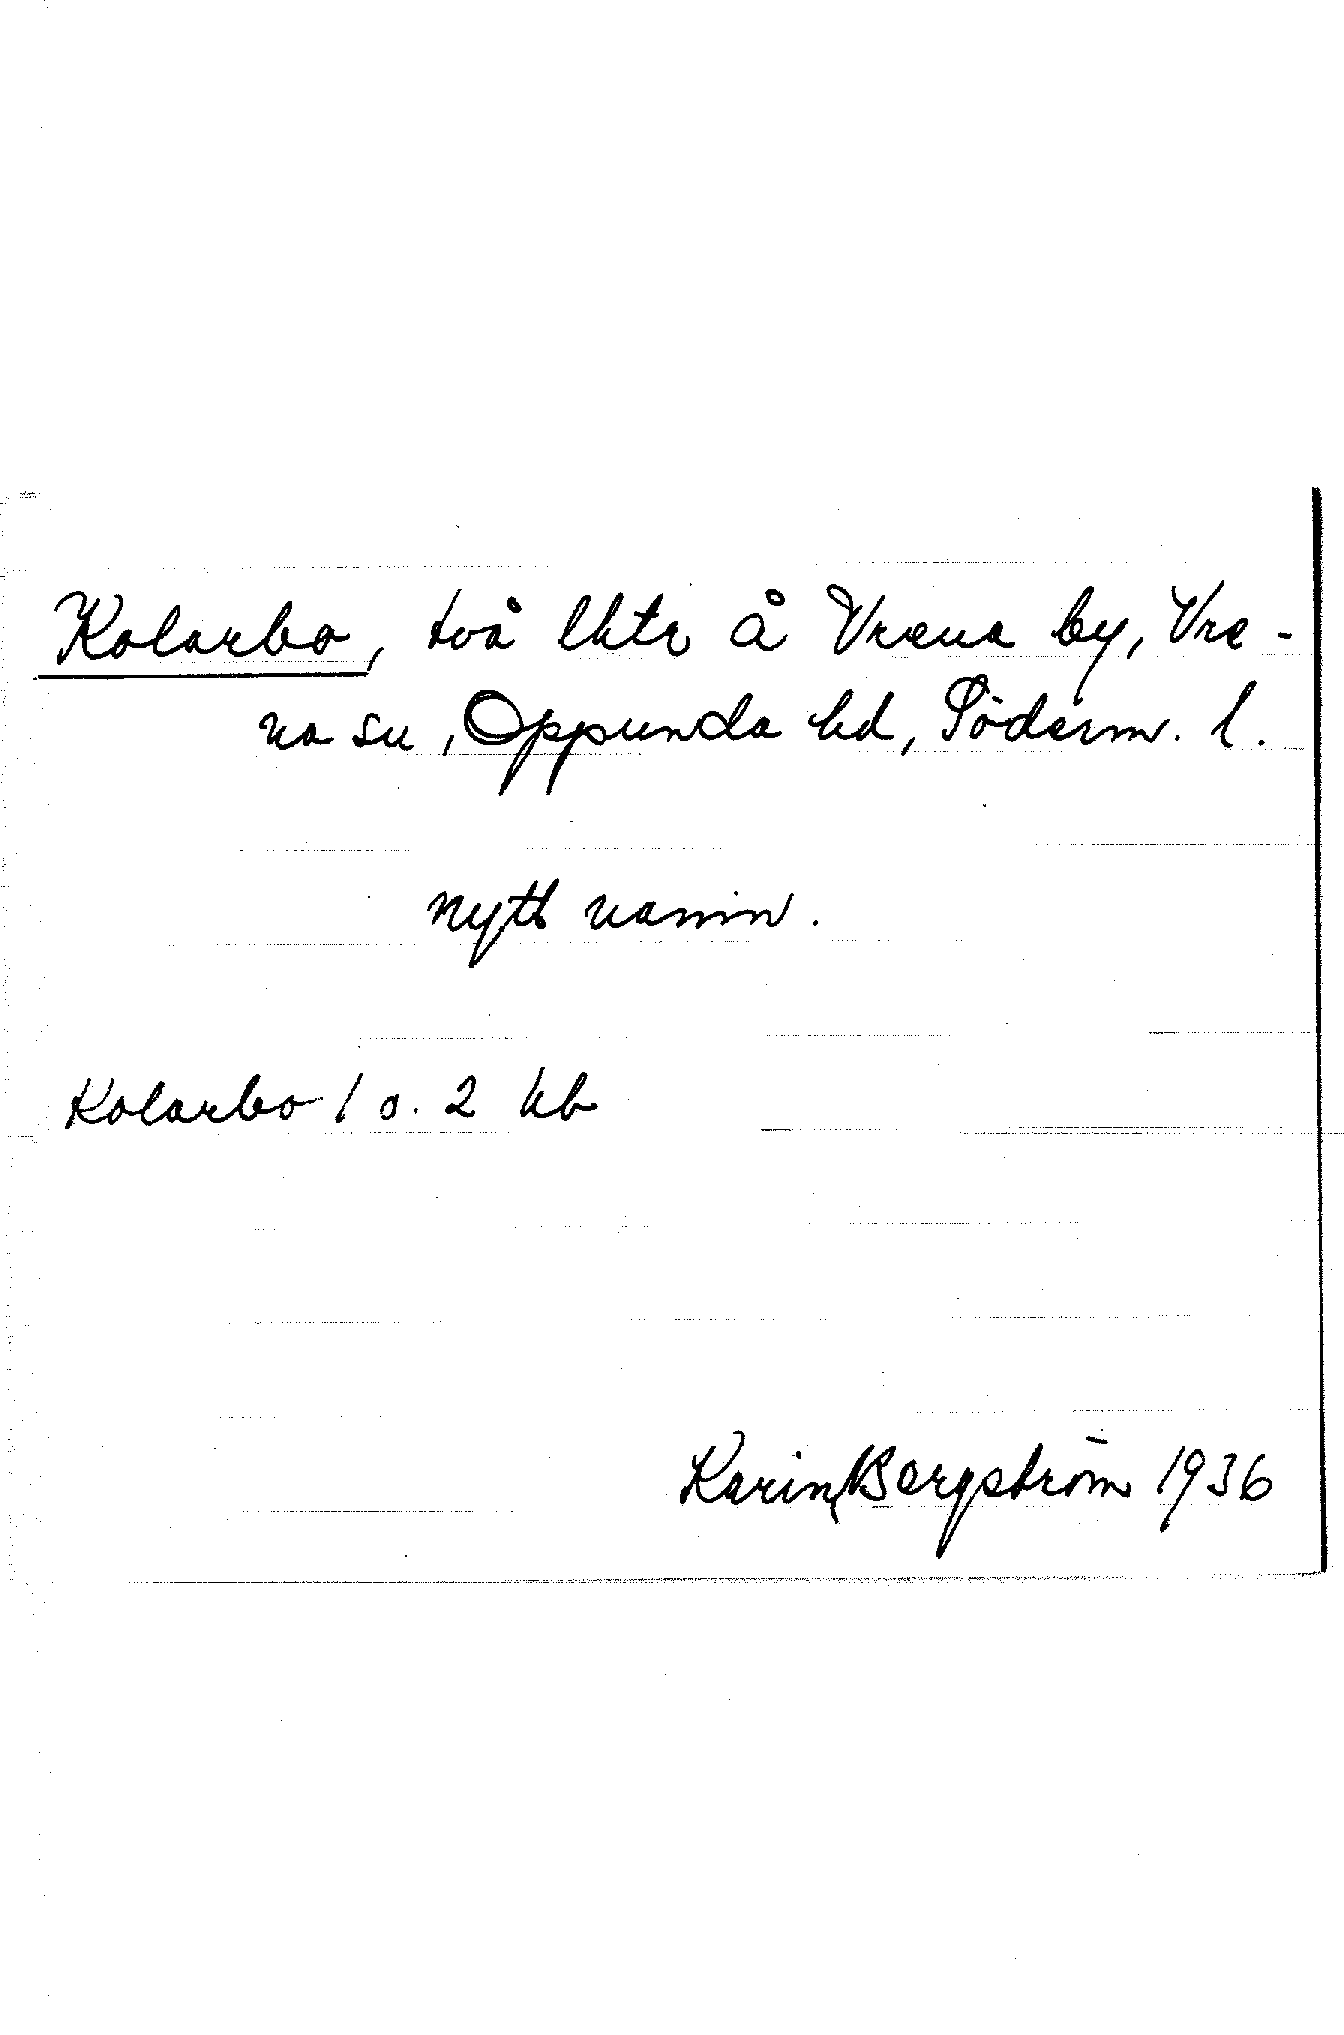 Kolarbo, två lhtr å Vrena by, Vre-
na sn, Oppunda hd, Söderm. l.
nytt namn.
Kolarbo 1 o. 2 kb
Karin Bergström 1936